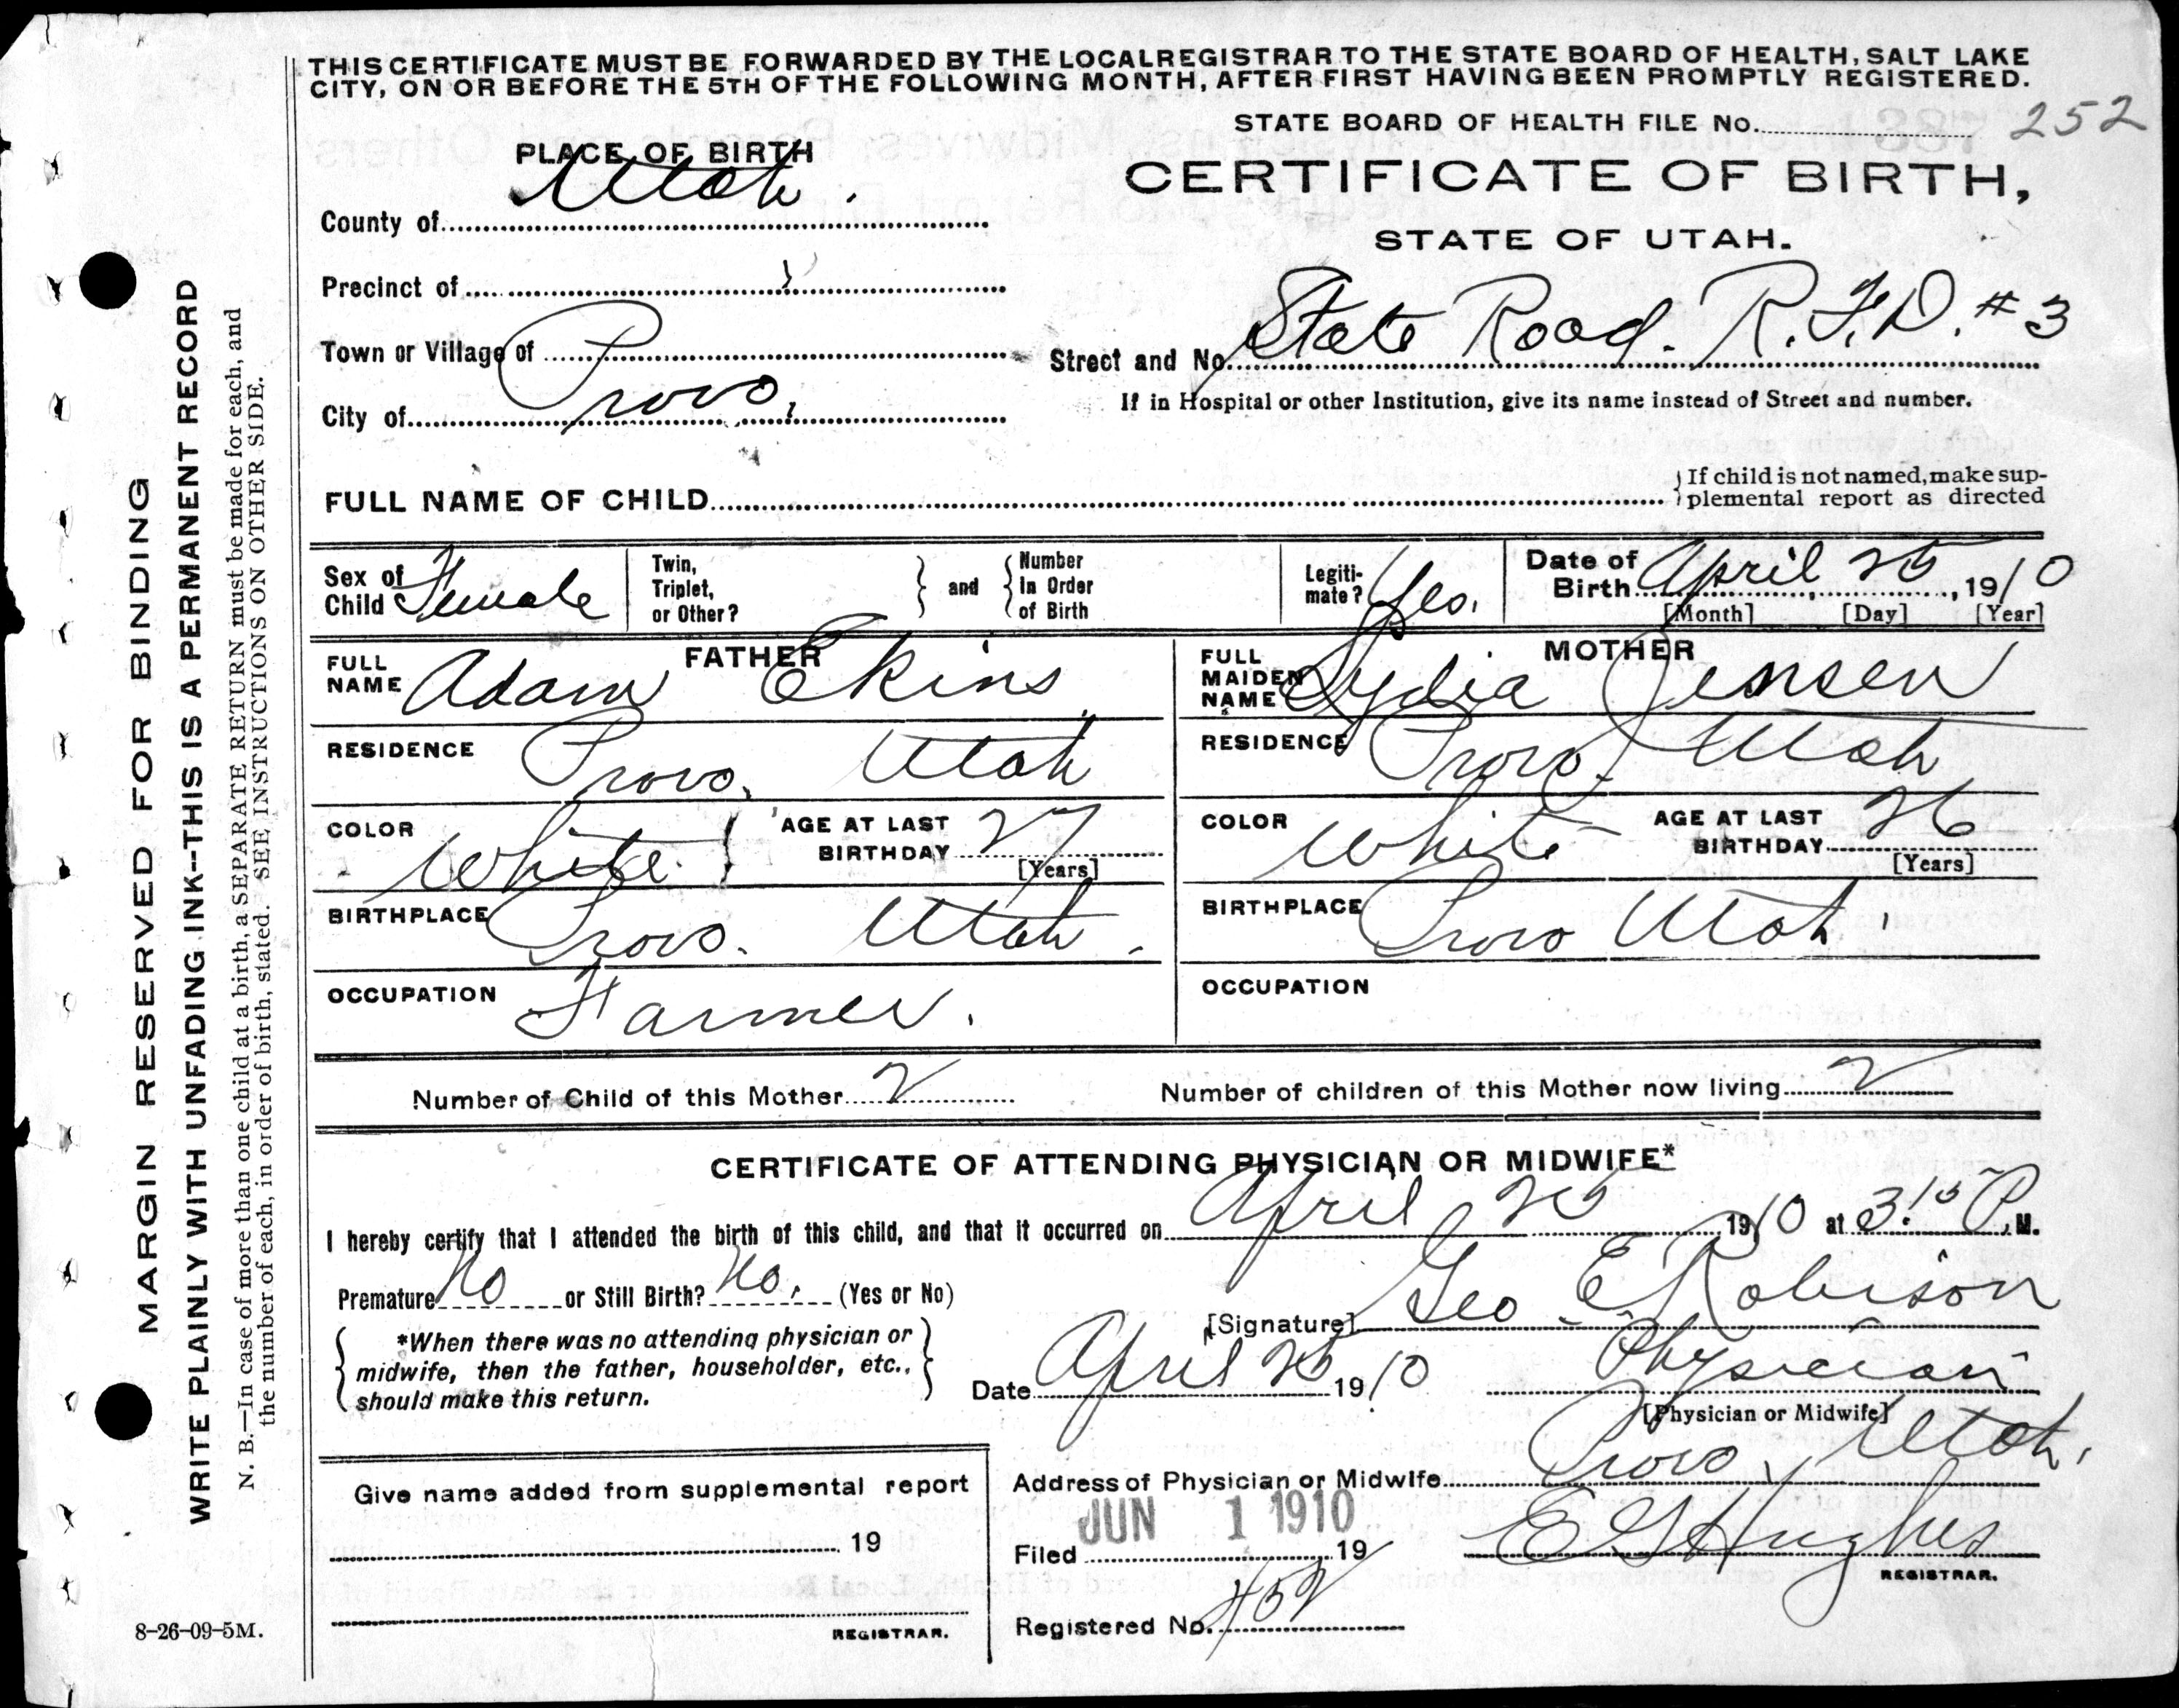 THIS CERTIFICATE MUST BE FORWARDED BY THE LOCAL REGISTRAR TO THE STATE BOARD OF HEALTH, SALT LAKE
CITY, ON OR BEFORE THE 5TH OF THE FOLLOWING MONTH, AFTER FIRST HAVING BEEN PROMPTLY REGISTERED.
STATE BOARD OF HEALTH FILE No. 252
PLACE OF BIRTH
CERTIFICATE OF BIRTH,
STATE OF UTAH.
County of Utah.
Precinct of
Town or Village of
City of Provo,
Street and No. State Road. R.F.D. #3
If in Hospital or other Institution, give its name instead of Street and number.
FULL NAME OF CHILD
If child is not named, make sup-
plemental report as directed
Sex of
Child Female
Twin,
Triplet,
or Other?
and
Number
in Order
of Birth
Legiti-
mate? Yes.
Date of
Birth April 25, 1910
[Month] [Day] [Year]
FATHER
FULL
NAME Adam Ekins
RESIDENCE Provo, Utah
COLOR White. AGE AT LAST
BIRTHDAY 27
[Years]
BIRTHPLACE Provo. Utah.
OCCUPATION Farmer.
MOTHER
FULL
MAIDEN
NAME Lydia Jensen
RESIDENCE Provo, Utah
COLOR White AGE AT LAST
BIRTHDAY 26
[Years]
BIRTHPLACE Provo Utah.
OCCUPATION
Number of Child of this Mother 2 Number of children of this Mother now living 2
CERTIFICATE OF ATTENDING PHYSICIAN OR MIDWIFE*
I hereby certify that I attended the birth of this child, and that it occurred on April 25 1910 at 3.15 P.M.
Premature No or Still Birth? No. (Yes or No)
*When there was no attending physician or
midwife, then the father, householder, etc.,
should make this return.
[Signature] Geo. E. Robison
Date April 25 1910 Physician
[Physician or Midwife]
Address of Physician or Midwife Provo, Utah.
Give name added from supplemental report
19
REGISTRAR.
JUN 1 1910
Filed 19 E G Hughes
REGISTRAR.
Registered No. 452
8-26-09-5M.
MARGIN RESERVED FOR BINDING
WRITE PLAINLY WITH UNFADING INK--THIS IS A PERMANENT RECORD
N. B.—In case of more than one child at a birth, a SEPARATE RETURN must be made for each, and
the number of each, in order of birth, stated. SEE INSTRUCTIONS ON OTHER SIDE.